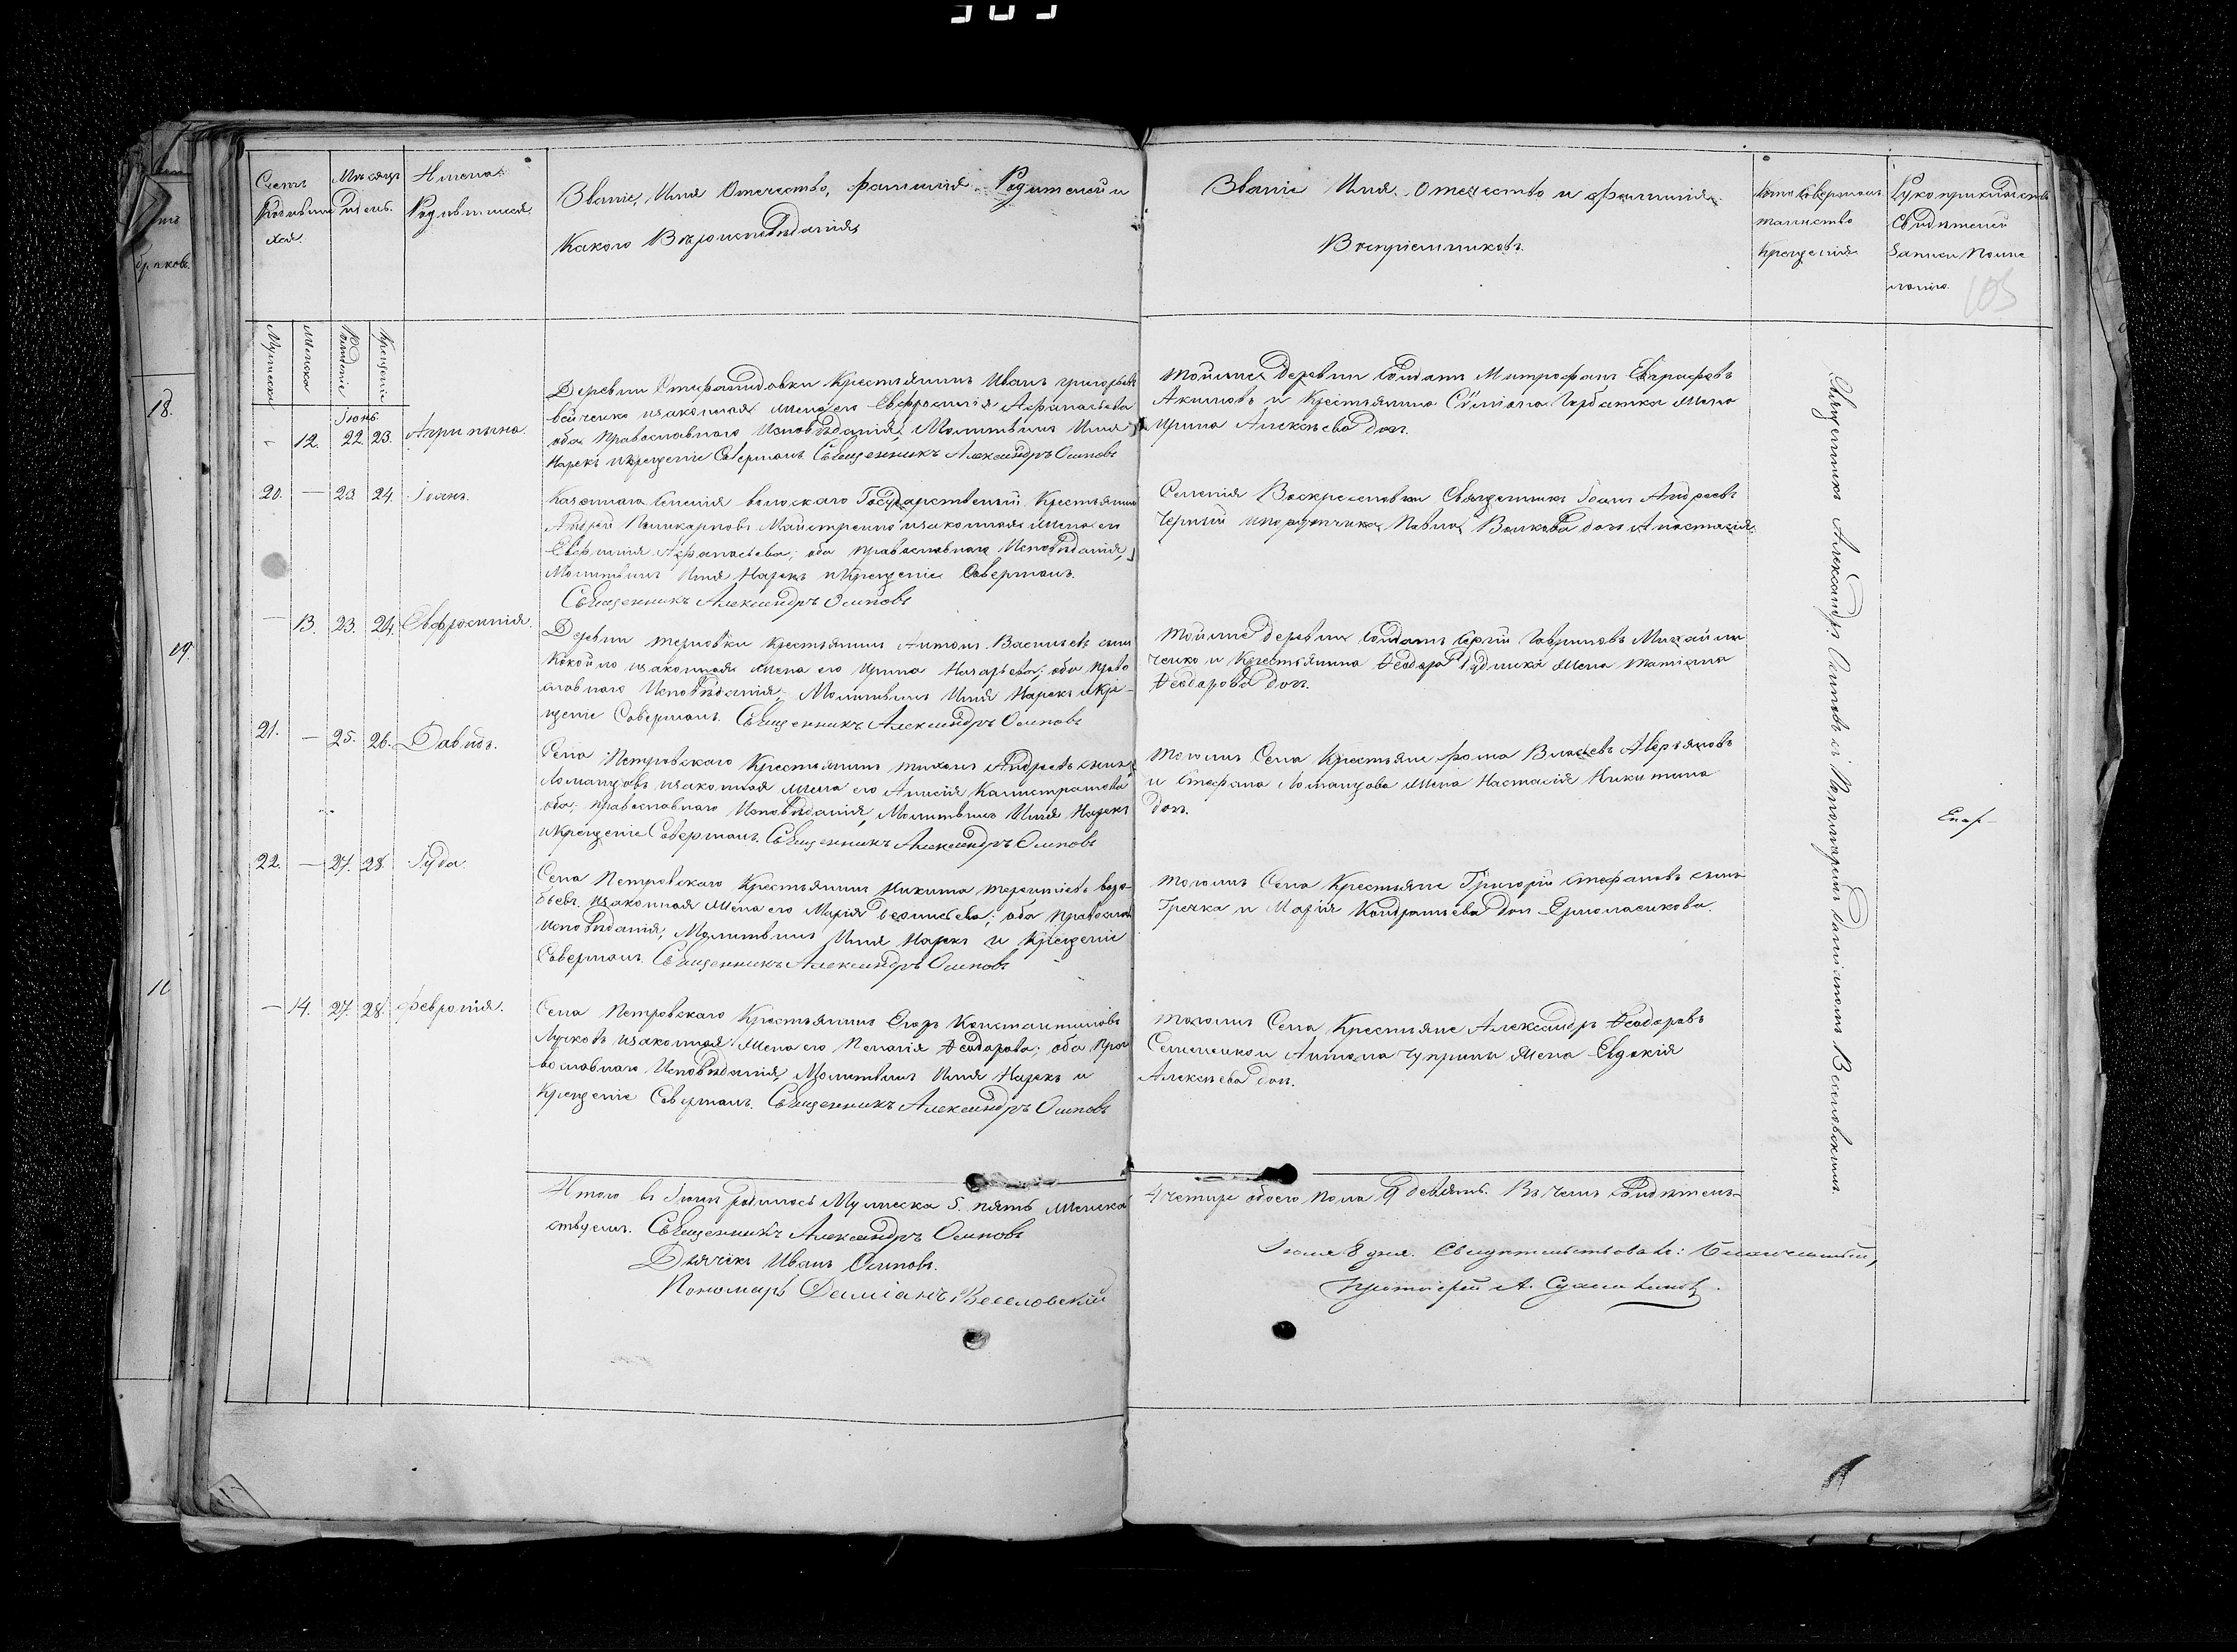 Счетъ
родившихся.
Мѣсяцъ
и день.
Имена
Родившихся.
Званіе, Имя Отечество, фамилія Родителей и
Какого Вѣроисповѣданія
Званіе Имя Отечество и фамилія
Воспріемниковъ.
Кто Совершалъ
таинство
крещенія
Рукоприкладство
Свидѣтелей
Записи
105
Мужеска
Женска
Рожденіе
Крещеніе
Іюнь
- 12. 22. 23. Агрипина
Деревни Крестьянинъ Иванъ
изаконная жена его Евфросинія Афанасьева
оба Православнаго Исповѣданія; Молитвилъ Имя
Нарекъ икрещеніе Совершалъ Священникъ Александръ Осиповъ
тойже Деревни Солдатъ Митрофанъ Евграфовъ
Акимовъ и Крестьянина жена
Ирина Алексѣева доч.
20. — 23 24 Іоанъ.
Казеннаго Селенія Государственный Крестьянинъ
Андрей Поликарповъ Майстренко изаконная жена его
Евфимія Афанасьева; оба православнаго Исповѣданія,
Молитвилъ Имя Нарекъ икрещеніе Совершалъ.
Священникъ Александръ Осиповъ
Селенія Воскресеновки Священникъ Іоанъ Андреевъ
Черній ипоручика Павла Волкова доч Анастасія
— 13. 23. 24. Евфросинія.
Деревни терновки крестьянинъ Антонъ Васильевъ сынъ
изаконная жена его Ирина Назарьева; оба право
славнаго Исповѣданія; Молитвилъ Имя Нарекъ икре-
щеніе Совершалъ. Священникъ Александръ Осиповъ
тойже деревни Солдатъ Сергій Гавриловъ Михайли
ченко и Крестьянина Ѳеодора жена татіана
Ѳеодорова доч.
21. — 25. 26. Давидъ.
Села Петровскаго Крестьянинъ тихонъ Андреевъ сынъ
Ломанцовъ изаконная жена его Анисія Калистратова
оба; православнаго Исповѣданія, Молитвилъ Имя Нарекъ
икрещеніе Совершалъ. Священникъ Александръ Осиповъ
тогожъ Села Крестьяне фома Власевъ Аверьяновъ
и Стефана Ломанцова жена Настасія Никитина
доч.
22. — 27. 28. Іуда.
Села Петровскаго Крестьянинъ Никита терентіевъ воро-
бьевъ изаконная жена его Марія; оба православ
исповѣданія, Молитвилъ Имя Нарекъ и крещеніе
Совершалъ. Священникъ Александръ Осиповъ
тогожъ Села Крестьяне Григорій Стефановъ сынъ
Гречка и Марія Кондратьева доч Ермолаенкова.
— 14. 27. 28. Февронія.
Села Петровскаго Крестьянинъ Егоръ Константиновъ
изаконная жена его Пелагія Ѳеодорова; оба пра
вославнаго Исповѣданія, Молитвилъ Имя Нарекъ и
крещеніе Совершалъ. Священникъ Александръ Осиповъ
тогожъ Села Крестьяне Александръ Ѳеодоровъ
Антона Чуприны жена Евдокія
Алексѣева доч.
Священникъ Александръ Осиповъ съ Пономаремъ Даміаномъ Веселовскимъ.
Итого въ Іюнѣ родилось Мужеска 5. пять женска
4 четыре обоего пола 9 девять. Въ чемъ Свидѣтель-
ствуемъ. Священникъ Александръ Осиповъ
Дьячекъ Иванъ Осиповъ.
Пономарь Даміанъ Веселовскій
Іюля 8 дня. Свидѣтельствовалъ: Благочинный,
Протоіерей А.
18.
19.